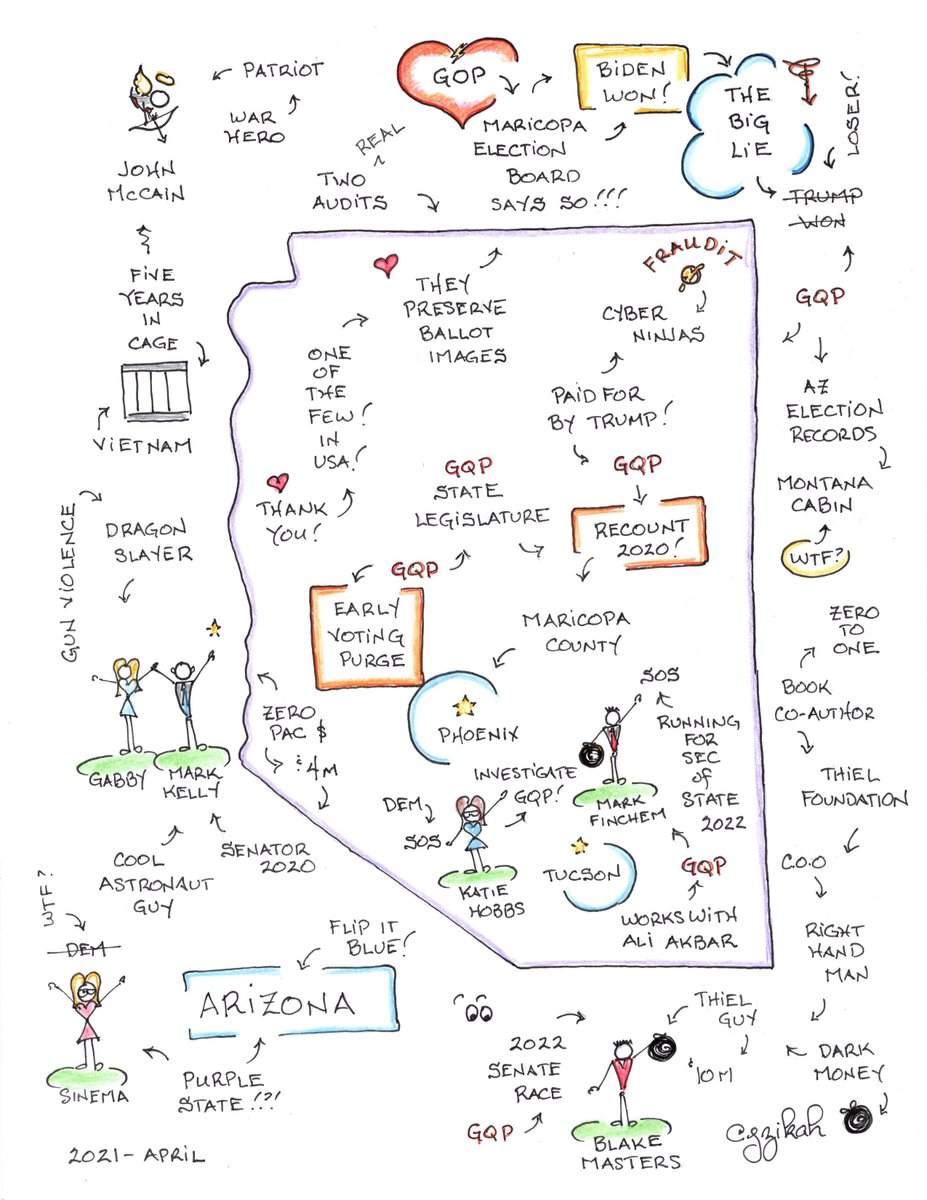 PATRIOT
WAR
HERO
JOHN
McCAIN
FIVE
YEARS
IN
CAGE
VIETNAM
GUN VIOLENCE
DRAGON
SLAYER
GABBY
MARK
KELLY
COOL
ASTRONAUT
GUY
SENATOR
2020
WTF?
DEM
SINEMA
ARIZONA
FLIP IT
BLUE!
PURPLE
STATE!?!
2021 - APRIL
GOP
BIDEN
WON!
MARICOPA
ELECTION
BOARD
SAYS SO!!!
THE
BIG
LIE
LOSER!
TRUMP
WON
REAL
^
TWO
AUDITS
THEY
PRESERVE
BALLOT
IMAGES
ONE
OF
THE
FEW!
IN
USA!
THANK
YOU!
FRAUDIT
CYBER
NINJAS
PAID FOR
BY TRUMP!
GQP
RECOUNT
2020!
GQP
STATE
LEGISLATURE
GQP
EARLY
VOTING
PURGE
MARICOPA
COUNTY
PHOENIX
ZERO
PAC $
$4M
DEM
SOS
KATIE
HOBBS
INVESTIGATE
GQP!
SOS
MARK
FINCHEM
RUNNING
FOR
SEC
OF
STATE
2022
GQP
WORKS WITH
ALI AKBAR
TUCSON
GQP
AZ
ELECTION
RECORDS
MONTANA
CABIN
WTF?
ZERO
TO
ONE
BOOK
CO-AUTHOR
THIEL
FOUNDATION
C.O.O
RIGHT
HAND
MAN
DARK
MONEY
THIEL
GUY
$10M
2022
SENATE
RACE
GQP
BLAKE
MASTERS
Cyzikah